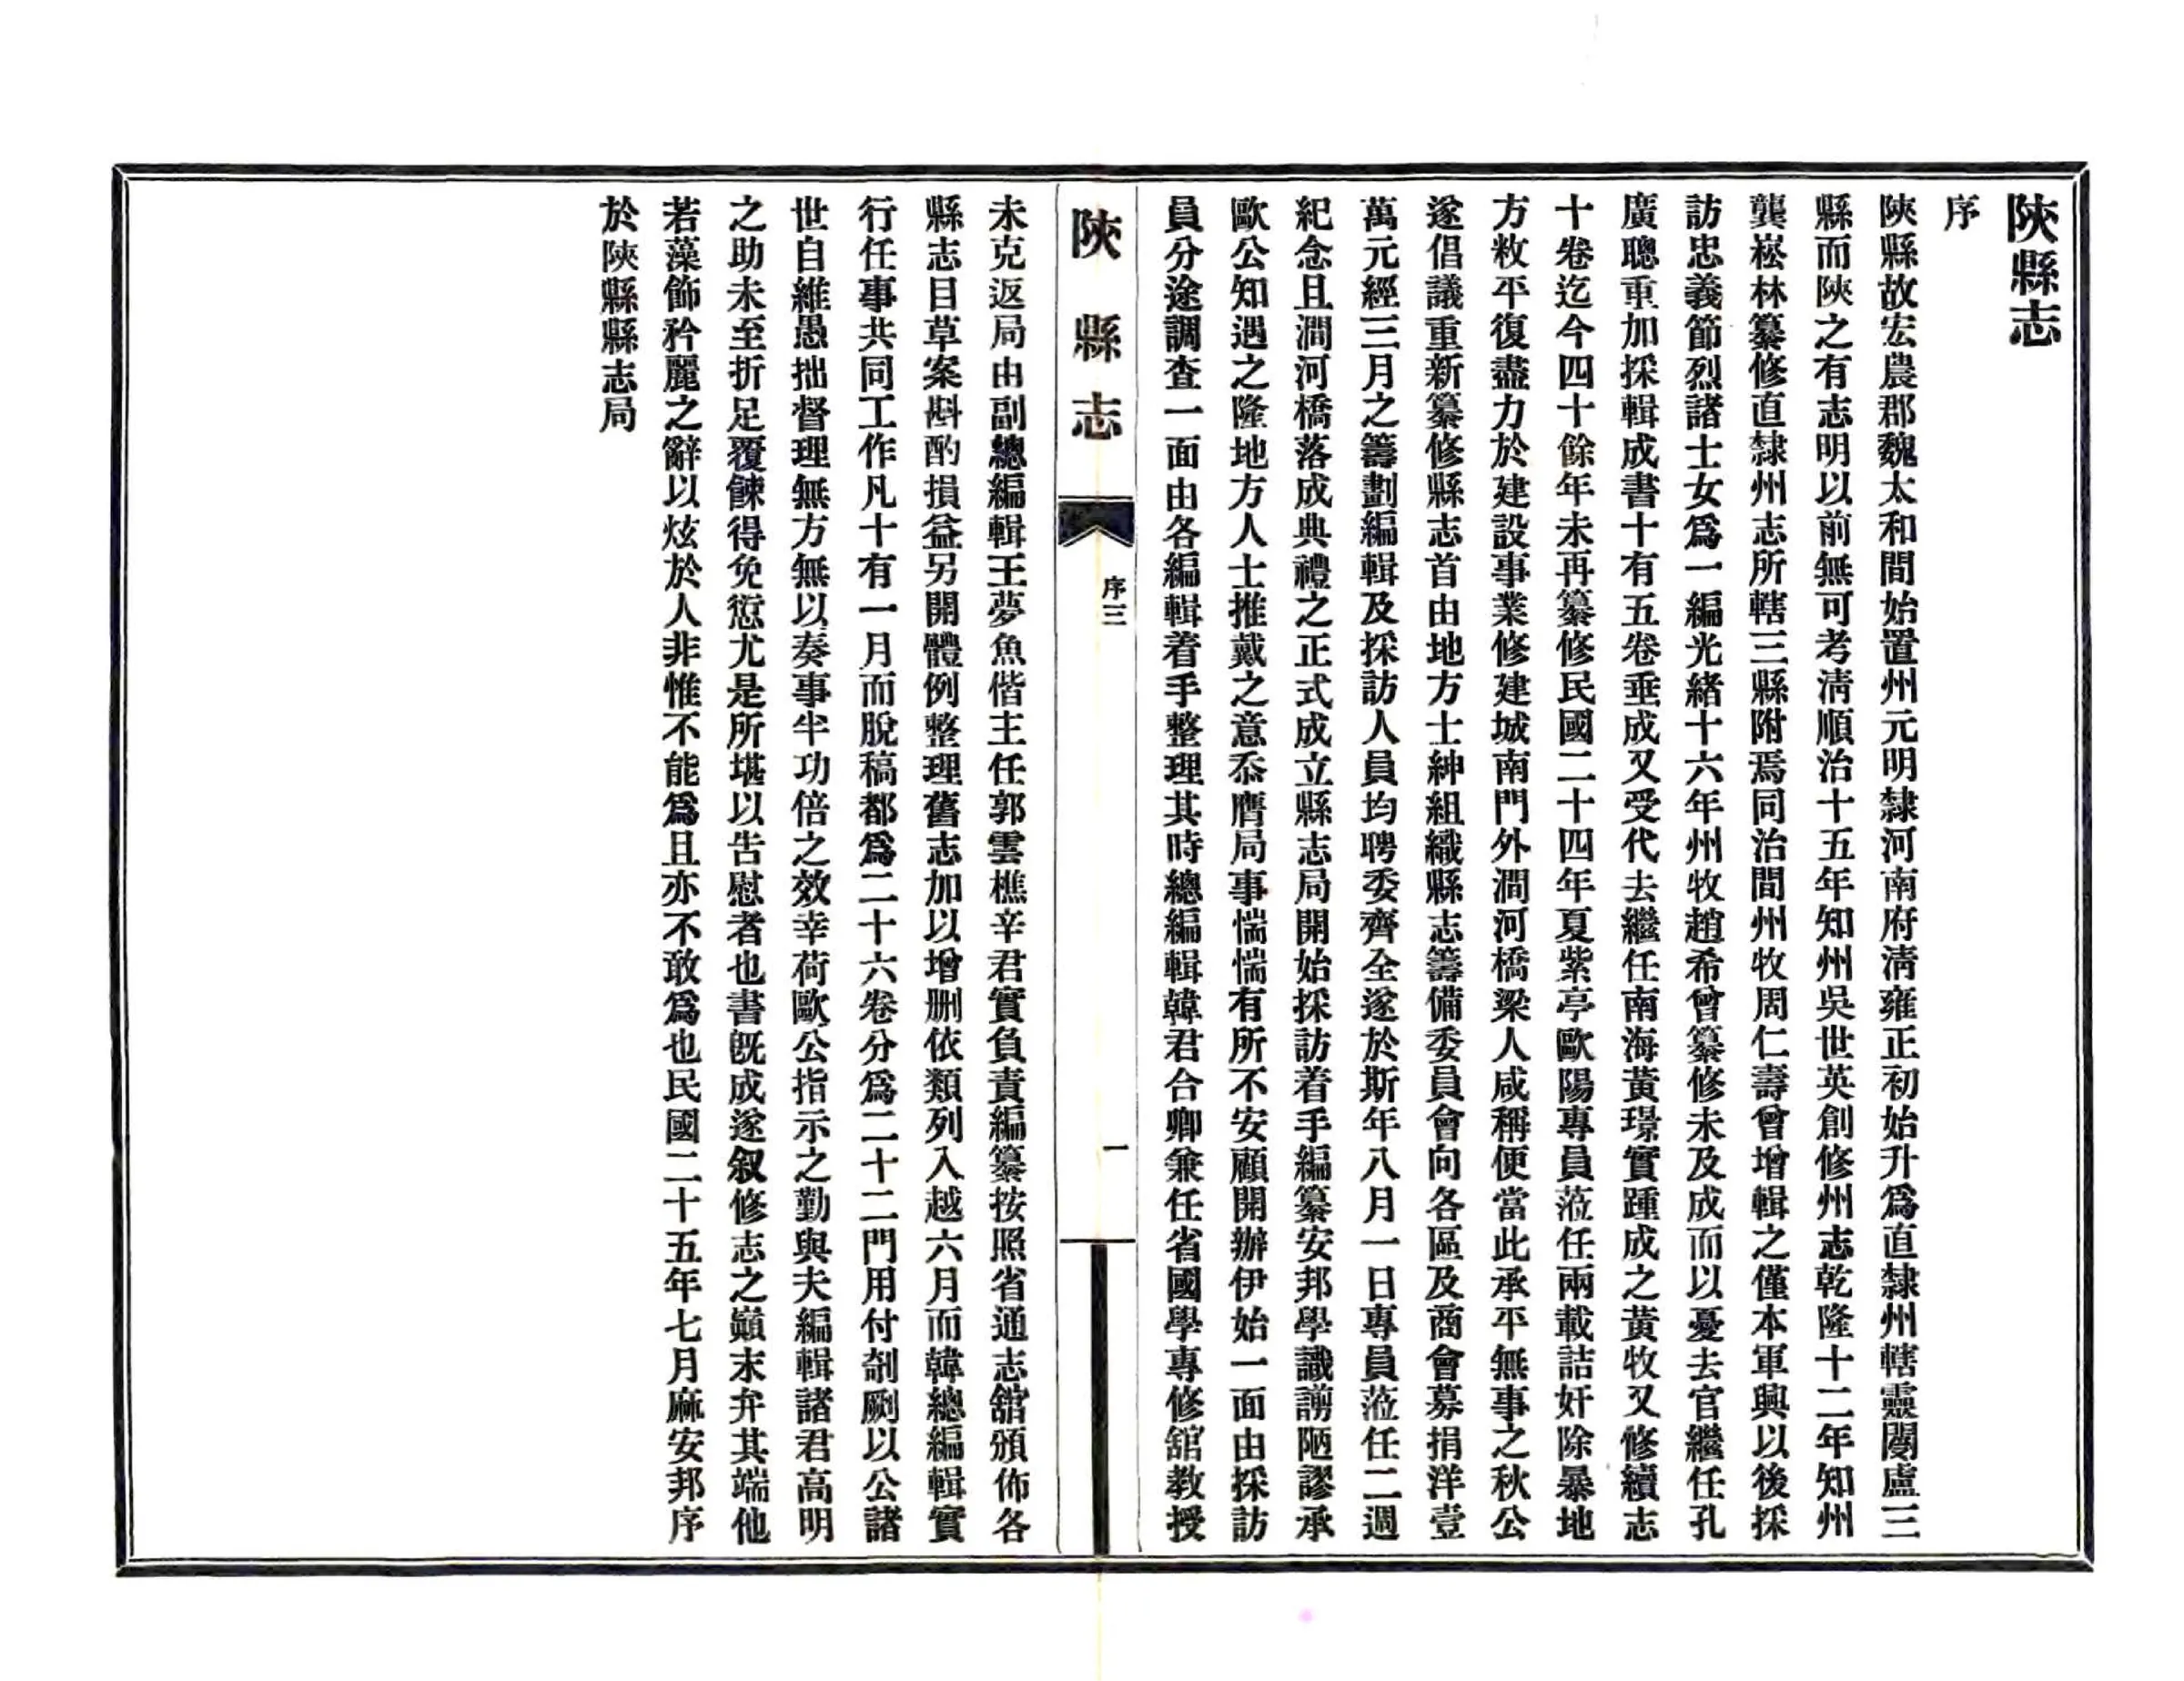 陝縣志
序
陝縣故宏農郡魏太和間始置州元明隸河南府淸雍正初始升爲直隸州轄靈閿盧三
縣而陝之有志明以前無可考淸順治十五年知州吳世英創修州志乾隆十二年知州
龔崧林纂修直隸州志所轄三縣附焉同治間州牧周仁壽曾增輯之僅本軍興以後採
訪忠義節烈諸士女爲一編光緒十六年州牧趙希曾纂修未及成而以憂去官繼任孔
廣聰重加採輯成書十有五卷垂成又受代去繼任南海黃璟實踵成之黃牧又修續志
十卷迄今四十餘年未再纂修民國二十四年夏紫亭歐陽專員蒞任兩載詰奸除暴地
方敉平復盡力於建設事業修建城南門外澗河橋梁人咸稱便當此承平無事之秋公
遂倡議重新纂修縣志首由地方士紳組織縣志籌備委員會向各區及商會募捐洋壹
萬元經三月之籌劃編輯及採訪人員均聘委齊全遂於斯年八月一日專員蒞任二週
紀念且澗河橋落成典禮之正式成立縣志局開始採訪着手編纂安邦學識譾陋謬承
歐公知遇之隆地方人士推戴之意忝膺局事惴惴有所不安顧開辦伊始一面由採訪
員分途調查一面由各編輯着手整理其時總編輯韓君合卿兼任省國學專修舘教授
陝縣志
序三
一
未克返局由副總編輯王夢魚偕主任郭雲樵辛君實負責編纂按照省通志舘頒佈各
縣志目草案斟酌損益另開體例整理舊志加以增删依類列入越六月而韓總編輯實
行任事共同工作凡十有一月而脫稿都爲二十六卷分爲二十二門用付剞劂以公諸
世自維愚拙督理無方無以奏事半功倍之效幸荷歐公指示之勤與夫編輯諸君高明
之助未至折足覆餗得免愆尤是所堪以告慰者也書旣成遂叙修志之巓末弁其端他
若藻飾矜麗之辭以炫於人非惟不能爲且亦不敢爲也民國二十五年七月麻安邦序
於陝縣縣志局